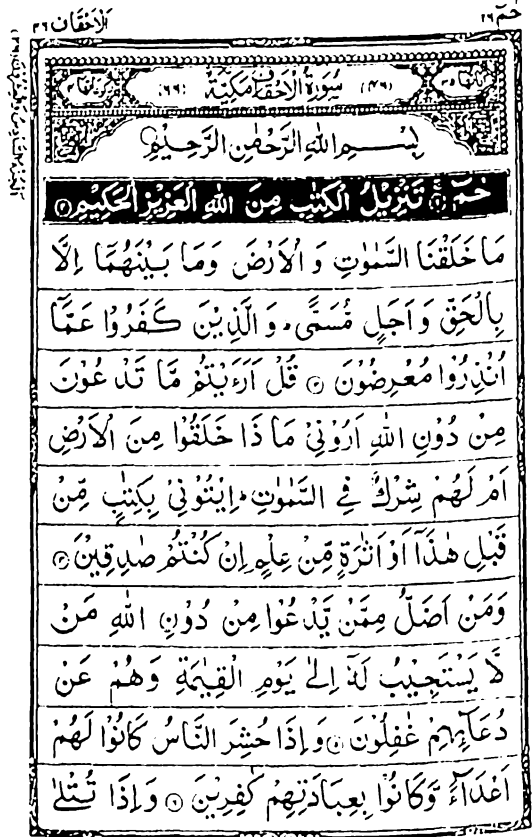 حٰمٓ ٢٦
الاحقاف ٤٦
(٤٦) سُوْرَةُ الْاَحْقَافِ مَكِّيَّةٌ (٦٦)
بِسْمِ اللّٰهِ الرَّحْمٰنِ الرَّحِيْمِ
حٰمٓ ۝١ تَنْزِيْلُ الْكِتٰبِ مِنَ اللّٰهِ الْعَزِيْزِ الْحَكِيْمِ ۝٢
مَا خَلَقْنَا السَّمٰوٰتِ وَ الْاَرْضَ وَمَا بَيْنَهُمَآ اِلَّا
بِالْحَقِّ وَ اَجَلٍ مُّسَمًّى ؕ وَ الَّذِيْنَ كَفَرُوْا عَمَّآ
اُنْذِرُوْا مُعْرِضُوْنَ ۝٣ قُلْ اَرَءَيْتُمْ مَّا تَدْعُوْنَ
مِنْ دُوْنِ اللّٰهِ اَرُوْنِيْ مَا ذَا خَلَقُوْا مِنَ الْاَرْضِ
اَمْ لَهُمْ شِرْكٌ فِي السَّمٰوٰتِ ؕ اِيْتُوْنِيْ بِكِتٰبٍ مِّنْ
قَبْلِ هٰذَآ اَوْ اَثٰرَةٍ مِّنْ عِلْمٍ اِنْ كُنْتُمْ صٰدِقِيْنَ ۝٤
وَمَنْ اَضَلُّ مِمَّنْ يَّدْعُوْا مِنْ دُوْنِ اللّٰهِ مَنْ
لَّا يَسْتَجِيْبُ لَهٗٓ اِلٰى يَوْمِ الْقِيٰمَةِ وَهُمْ عَنْ
دُعَآئِهِمْ غٰفِلُوْنَ ۝٥ وَ اِذَا حُشِرَ النَّاسُ كَانُوْا لَهُمْ
اَعْدَآءً وَّكَانُوْا بِعِبَادَتِهِمْ كٰفِرِيْنَ ۝٦ وَ اِذَا تُتْلٰى